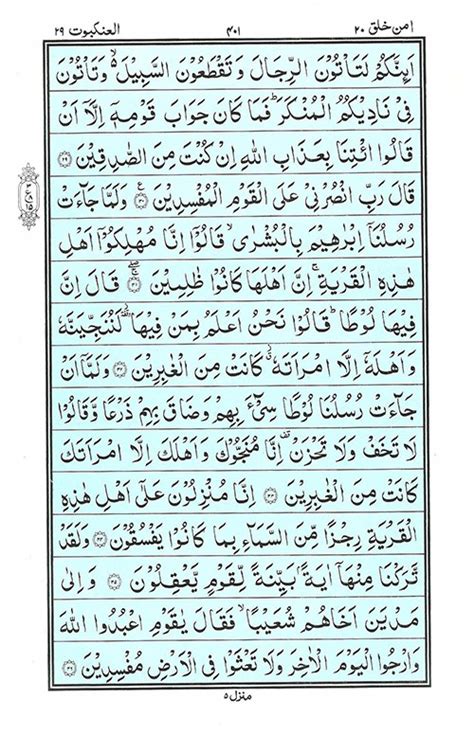 امن خلق ٢٠
٤٠١
العنكبوت ٢٩
اَىِٕنَّكُمْ لَتَاْتُوْنَ الرِّجَالَ وَتَقْطَعُوْنَ السَّبِيْلَ ۙ۬ وَتَاْتُوْنَ
فِيْ نَادِيْكُمُ الْمُنْكَرَ ؕ فَمَا كَانَ جَوَابَ قَوْمِهٖۤ اِلَّاۤ اَنْ
قَالُوا ائْتِنَا بِعَذَابِ اللّٰهِ اِنْ كُنْتَ مِنَ الصّٰدِقِيْنَ ۝٢٩
قَالَ رَبِّ انْصُرْنِيْ عَلَى الْقَوْمِ الْمُفْسِدِيْنَ ۝٣٠ وَلَمَّا جَآءَتْ
رُسُلُنَاۤ اِبْرٰهِيْمَ بِالْبُشْرٰى ۙ قَالُوْۤا اِنَّا مُهْلِكُوْۤا اَهْلِ
هٰذِهِ الْقَرْيَةِ ۚ اِنَّ اَهْلَهَا كَانُوْا ظٰلِمِيْنَ ۝٣١ قَالَ اِنَّ
فِيْهَا لُوْطًا ؕ قَالُوْا نَحْنُ اَعْلَمُ بِمَنْ فِيْهَا ۥ٘ لَنُنَجِّيَنَّهٗ
وَاَهْلَهٗۤ اِلَّا امْرَاَتَهٗ ٘ۗ كَانَتْ مِنَ الْغٰبِرِيْنَ ۝٣٢ وَلَمَّاۤ اَنْ
جَآءَتْ رُسُلُنَا لُوْطًا سِيْٓءَ بِهِمْ وَضَاقَ بِهِمْ ذَرْعًا وَّقَالُوْا
لَا تَخَفْ وَلَا تَحْزَنْ ۫ اِنَّا مُنَجُّوْكَ وَاَهْلَكَ اِلَّا امْرَاَتَكَ
كَانَتْ مِنَ الْغٰبِرِيْنَ ۝٣٣ اِنَّا مُنْزِلُوْنَ عَلٰۤى اَهْلِ هٰذِهِ
الْقَرْيَةِ رِجْزًا مِّنَ السَّمَآءِ بِمَا كَانُوْا يَفْسُقُوْنَ ۝٣٤ وَلَقَدْ
تَّرَكْنَا مِنْهَاۤ اٰيَةًۢ بَيِّنَةً لِّقَوْمٍ يَّعْقِلُوْنَ ۝٣٥ وَاِلٰى
مَدْيَنَ اَخَاهُمْ شُعَيْبًا ۙ فَقَالَ يٰقَوْمِ اعْبُدُوا اللّٰهَ
وَارْجُوا الْيَوْمَ الْاٰخِرَ وَلَا تَعْثَوْا فِي الْاَرْضِ مُفْسِدِيْنَ ۝٣٦
منزل ٥